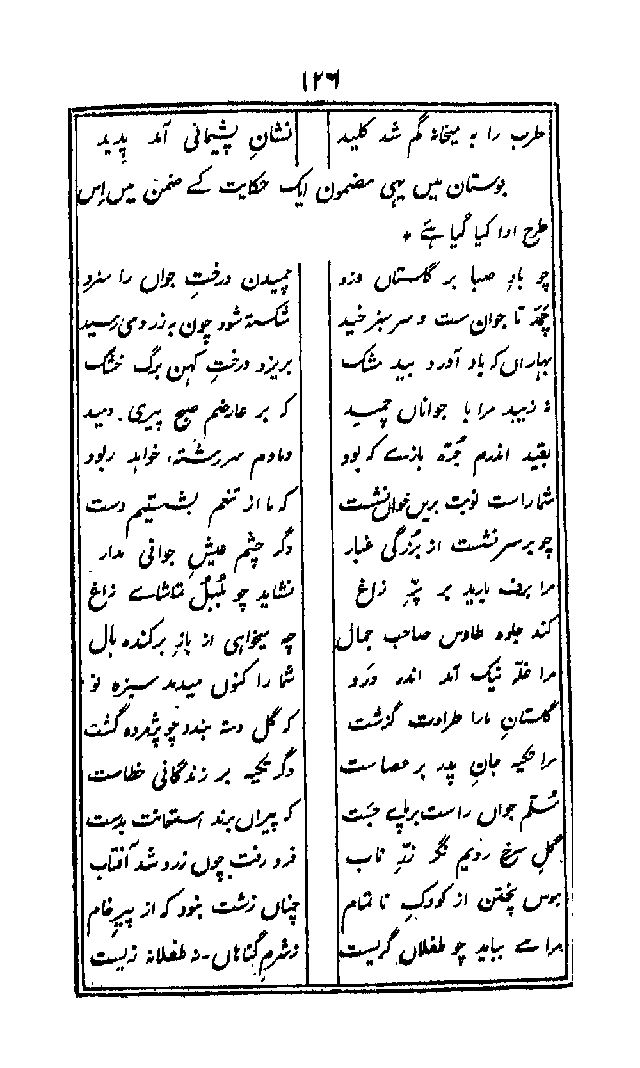 ۱۲۶
طرب را به میخانهٔ گم شد کلید نشانِ پشیمانی آمد پدید
بوستان میں یہی مضمون ایک حکایت کے ضمن میں اِس
طرح ادا کیا گیا ہے *
چو بادِ صبا بر گلستان وزد چمیدن درختِ جوان را سزد
چمد تا جوان ست و سر سبز خید شکسته شود چون به زردی رسید
بہاران کہ باد آورد بید مشک بریزد درختِ کہن برگ خشک
نہ زیبد مرا با جوانان چمید کہ بر عارضم صبحِ پیری دمید
بقید اندرم جُرّہ بازے کہ بود دمادم سرِ رشتہ خواہد ربود
شما راست نوبت برین خوان نشست کہ ما از تنعم بشستیم دست
چو بر سر نشست از بزرگی غبار دگر چشم عیشِ جوانی مدار
مرا برف بارید بر پرِّ زاغ نشاید چو بلبل تماشاے زاغ
کند جلوہ طاوس صاحب جمال چہ میخواہی از بازِ برکندہ بال
مرا غلّہ نیک آمد اندر درو شما را کنون میدمد سبزہ نو
گلستانِ مارا طراوت گذشت کہ گل دستہ بندد چو پژمردہ گشت
مرا تکیہ جانِ پدر بر عصاست دگر تکیہ بر زندگانی خطاست
مُسلّم جوان راست بر پاے جست کہ پیران برند استعانت بدست
گلِ سرخ رویم نگر زرِّ ناب فرو رفت چون زرد شد آفتاب
ہوس پختن از کودکِ نا تمام چنان زشت نبود کہ از پیرِ خام
مرا مے بباید چو طفلان گریست ز شرمِ گناہان نہ طفلانہ زیست